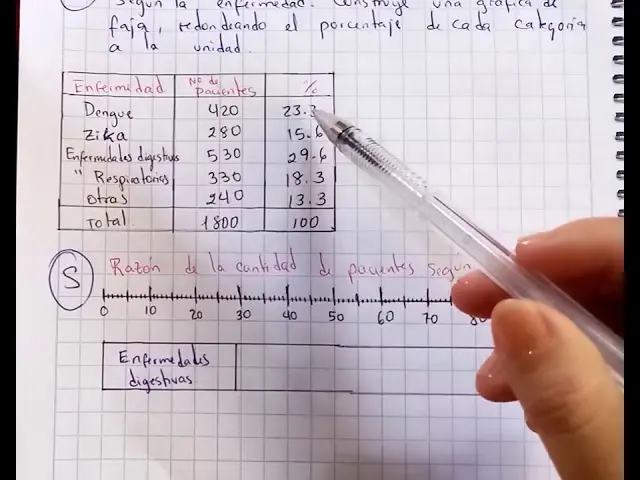 Según la enfermedad. Construye una gráfica de
faja, redondeando el porcentaje de cada categoría
a la unidad.
Enfermedad Nº de pacientes %
Dengue 420 23.3
Zika 280 15.6
Enfermedades digestivas 530 29.6
" Respiratorias 330 18.3
otras 240 13.3
Total 1800 100
S Razón de la cantidad de pacientes según
0 10 20 30 40 50 60 70 80
Enfermedades
digestivas